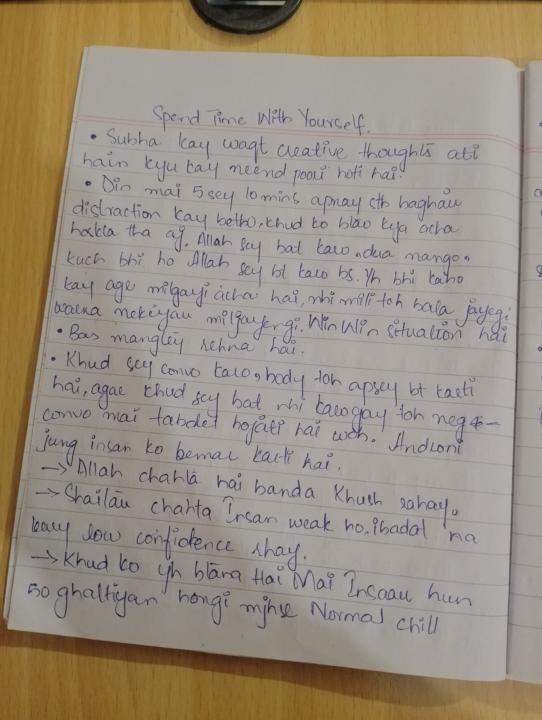 Spend Time With Yourself.
• Subha kay waqt creative thoughts ati
hain kyu kay neend poori hoti hai.
• Din mai 5 sey 10 mins apnay sth baghair
distraction kay betho. khud ko btao kya acha
hoskta tha aj. Allah sey bat karo, dua mango,
kuch bhi ho Allah sey bt karo bs. Yh bhi kaho
kay agr milgayi acha hai, nhi mili toh bala jayegi
warna nekiyan milgayengi. Win Win situation hai
• Bas mangtey rehna hai.
• Khud sey convo karo, body toh apsey bt karti
hai, agar khud sey bat nhi karogay toh neg
convo mai tabdel hojati hai woh. Androni
jung insan ko bemar karti hai.
→ Allah chahta hai banda Khush rahay.
→ Shaitan chahta Insan weak ho, ibadat na
karay low confidence rhay.
→ Khud ko yh btana Hai Mai Insaan hun
50 ghaltiyan hongi mjhse Normal chill